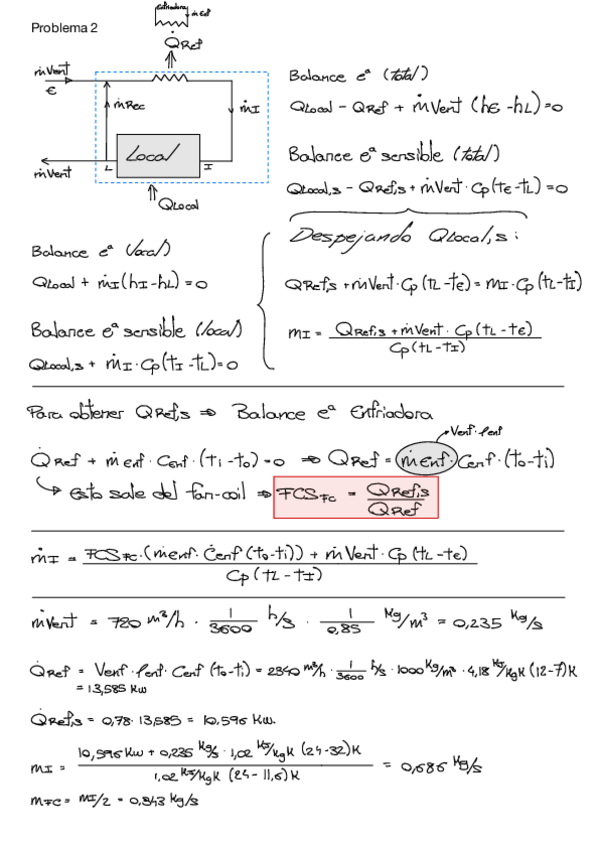 Problema 2
Enfriadora ṁ enf
Q̇Ref
ṁVent
E
ṁRec
ṁI
Local
ṁVent
L
I
QLocal
Balance eª (total)
QLocal - QRef + ṁVent (hE - hL) = 0
Balance eª sensible (total)
QLocal,s - QRef,s + ṁVent · Cp (tE - tL) = 0
Balance eª (local)
QLocal + ṁI (hI - hL) = 0
Balance eª sensible (local)
QLocal,s + ṁI · Cp (tI - tL) = 0
Despejando QLocal,s :
QRef,s + ṁVent · Cp (tL - tE) = mI · Cp (tL - tI)
mI = QRef,s + ṁVent · Cp (tL - tE) / Cp (tL - tI)
Para obtener QRef,s ⇒ Balance eª Enfriadora
Venf · ρenf
Q̇Ref + ṁenf · Cenf · (ti - to) = 0 ⇒ QRef = ṁenf · Cenf · (to - ti)
↳ esto sale del fan-coil ⇒ FCSFC = QRef,s / QRef
ṁI = FCSFC · (ṁenf · Cenf (to - ti)) + ṁVent · Cp (tL - tE) / Cp (tL - tI)
ṁVent = 720 m³/h · 1/3600 h/s · 1/0,85 Kg/m³ = 0,235 Kg/s
Q̇Ref = Venf · ρenf · Cenf (to - ti) = 2340 m³/h · 1/3600 h/s · 1000 Kg/m³ · 4,18 KJ/KgK (12-7)K
= 13,585 Kw
Q̇Ref,s = 0,78 · 13,585 = 10,596 Kw.
mI = 10,596 Kw + 0,235 Kg/s · 1,02 KJ/KgK (24-32)K / 1,02 KJ/KgK (24 - 11,6)K = 0,686 Kg/s
mFC = mI/2 = 0,343 Kg/s